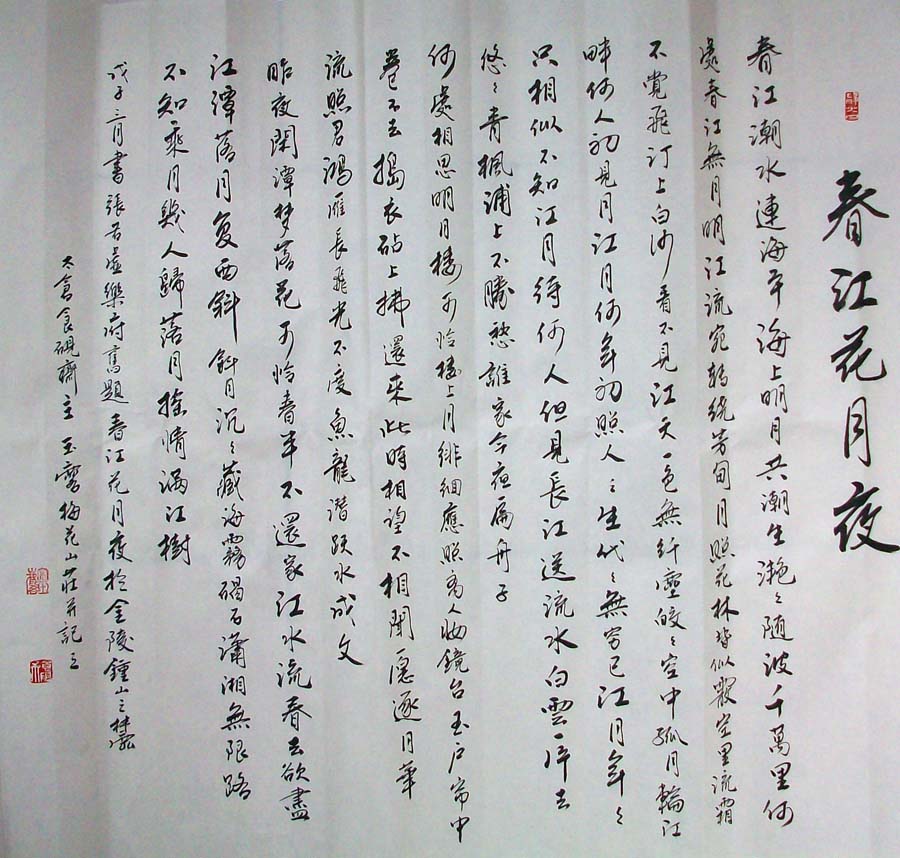 春江花月夜
春江潮水連海平海上明月共潮生灧々随波千萬里何
處春江無月明江流宛轉繞芳甸月照花林皆似霰空里流霜
不覺飛汀上白沙看不見江天一色無纤塵皎々空中孤月輪江
畔何人初見月江月何年初照人々生代々無窮已江月年々
只相似不知江月待何人但見長江送流水白雲一片去
悠々青楓浦上不勝愁誰家今夜扁舟子
何處相思明月楼可怜楼上月徘徊應照离人妝鏡台玉户帘中
卷不去搗衣砧上拂還来此時相望不相聞愿逐月華
流照君鴻雁長飛光不度魚龍潜跃水成文
昨夜閑潭梦落花可怜春半不還家江水流春去欲盡
江潭落月复西斜斜月沉々藏海霧碣石瀟湘無限路
不知乘月幾人歸落月摇情滿江樹
戊子三月書張若虚樂府舊題春江花月夜於金陵鍾山之
太倉食硯齋主玉鸾梅花山莊并記之